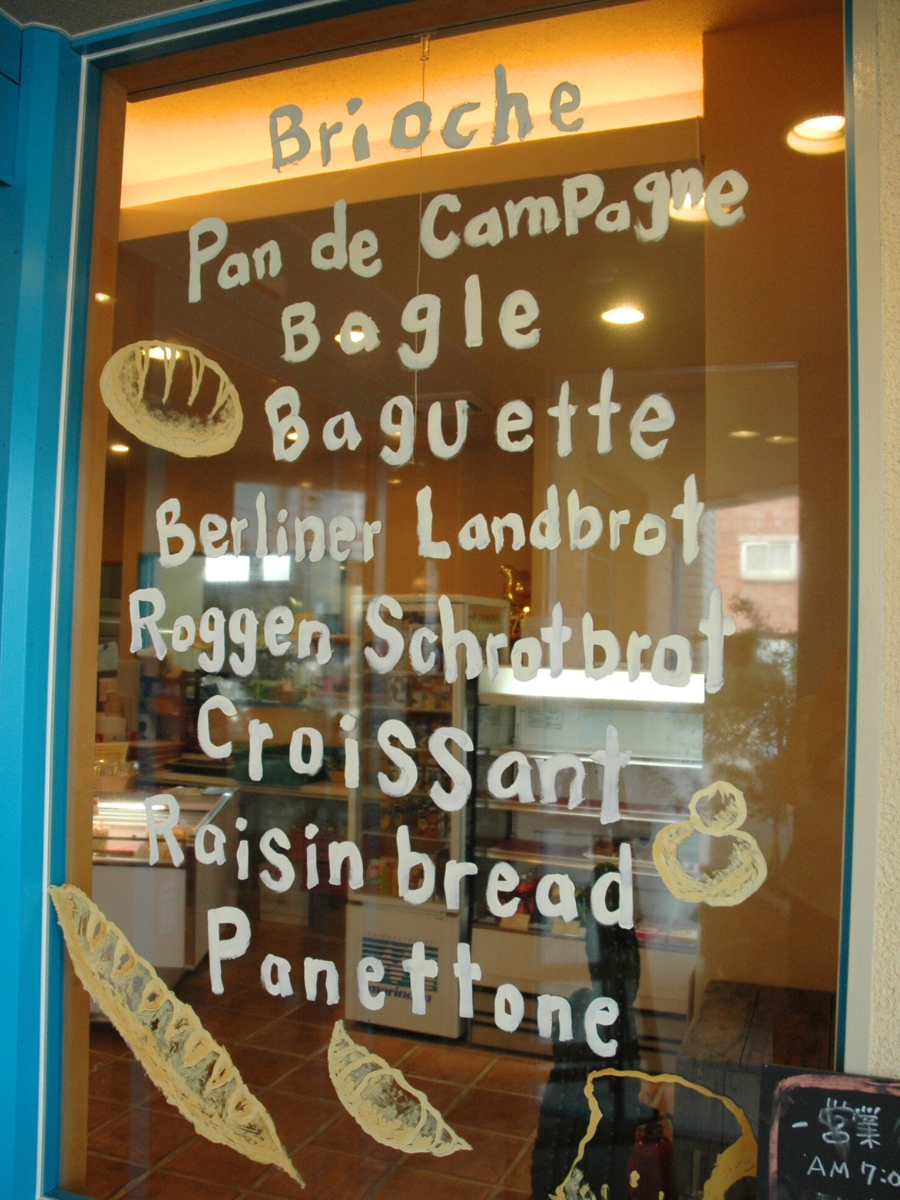 Brioche
Pan de Campagne
Bagle
Baguette
Berliner Landbrot
Roggen Schrotbrot
Croissant
Raisin bread
Panettone
営業
AM 7:0